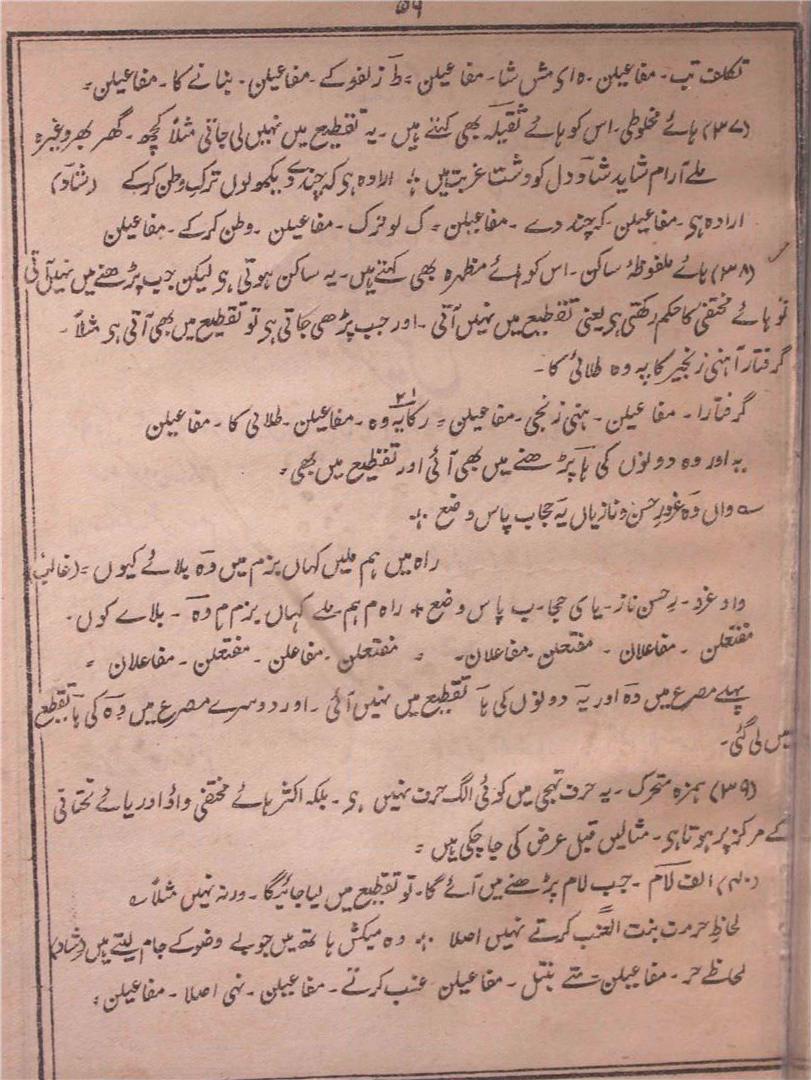 ۵۶
تکلف تب۔ مفاعیلن۔ ہ ای مش شا۔ مفاعیلن = ط زلفو کے۔ مفاعیلن۔ بنانے کا۔ مفاعیلن =
(۳۷) ہائے مخلوطی۔ اس کو ہائے ثقیلہ بھی کہتے ہیں۔ یہ تقطیع میں نہیں لی جاتی مثلاً کچھ۔ گھر بھر وغیرہ
ملے آرام شاید شاد دل کو دشت غربت میں ؛ ارادہ ہی کہ چندے دیکھ لوں ترک وطن کر کے (شاد)
ارادہ ہی۔ مفاعیلن۔ کہ چند دے۔ مفاعیلن = ک لو ترک۔ مفاعیلن۔ وطن کر کے۔ مفاعیلن
(۳۸) ہائے ملفوظۂ ساکن۔ اس کو ہائے مظہرہ بھی کہتے ہیں۔ یہ ساکن ہوتی ہی لیکن جب پڑھنے میں نہیں آتی
تو ہائے مختفی کا حکم رکھتی ہی یعنی تقطیع میں نہیں آتی۔ اور جب پڑھی جاتی ہی تو تقطیع میں بھی آتی ہی مثلاً۔
گرفتار آہنی زنجیر کا یہ وہ طلائی کا۔
گرفتارا۔ مفاعیلن۔ ہنی زنجی۔ مفاعیلن = رکا یہ وہ۔ مفاعیلن۔ طلائی کا۔ مفاعیلن
یہ اور وہ دونوں کی ہا پڑھنے میں بھی آئی اور تقطیع میں بھی =
واں وہ غرور حسن و ناز یاں یہ حجاب پاس وضع ؛
راہ میں ہم ملیں کہاں بزم میں وہ بلائے کیوں = (غالب)
وا و غرو۔ رحسن ناز۔ یا ی حجا۔ ب پاس وضع + راہ م ہم۔ ملے کہاں بزم م وہ۔ بلاے کوں۔
مفتعلن۔ مفاعلان۔ مفتعلن۔ مفاعلان۔ = مفتعلن۔ مفاعلن۔ مفتعلن۔ مفاعلان =
پہلے مصرع میں وہ اور یہ دونوں کی ہا تقطیع میں نہیں آئی۔ اور دوسرے مصرع میں وہ کی ہا تقطیع
میں لی گئی۔
(۳۹) ہمزہ متحرک۔ یہ حرف تہجی میں کوئی الگ حرف نہیں ہی۔ بلکہ اکثر ہائے مختفی واؤ اور یائے تحتانی
کے مرکز پر ہوتا ہی۔ مثالیں قبل عرض کی جا چکی ہیں =
(۴۰) الف لام۔ جب لام پڑھنے میں آئے گا۔ تو تقطیع میں لیا جائیگا۔ ورنہ نہیں مثلاً
لحاظِ حرمت بنت العنب کرتے نہیں اصلا ؛ وہ میکش ہاتھ میں جو بے وضو کے جام لیتے ہیں (شاد)
لحاظے حر۔ مفاعیلن۔ متے بنتل۔ مفاعیلن عنب کرتے۔ مفاعیلن۔ نہی اصلا۔ مفاعیلن =